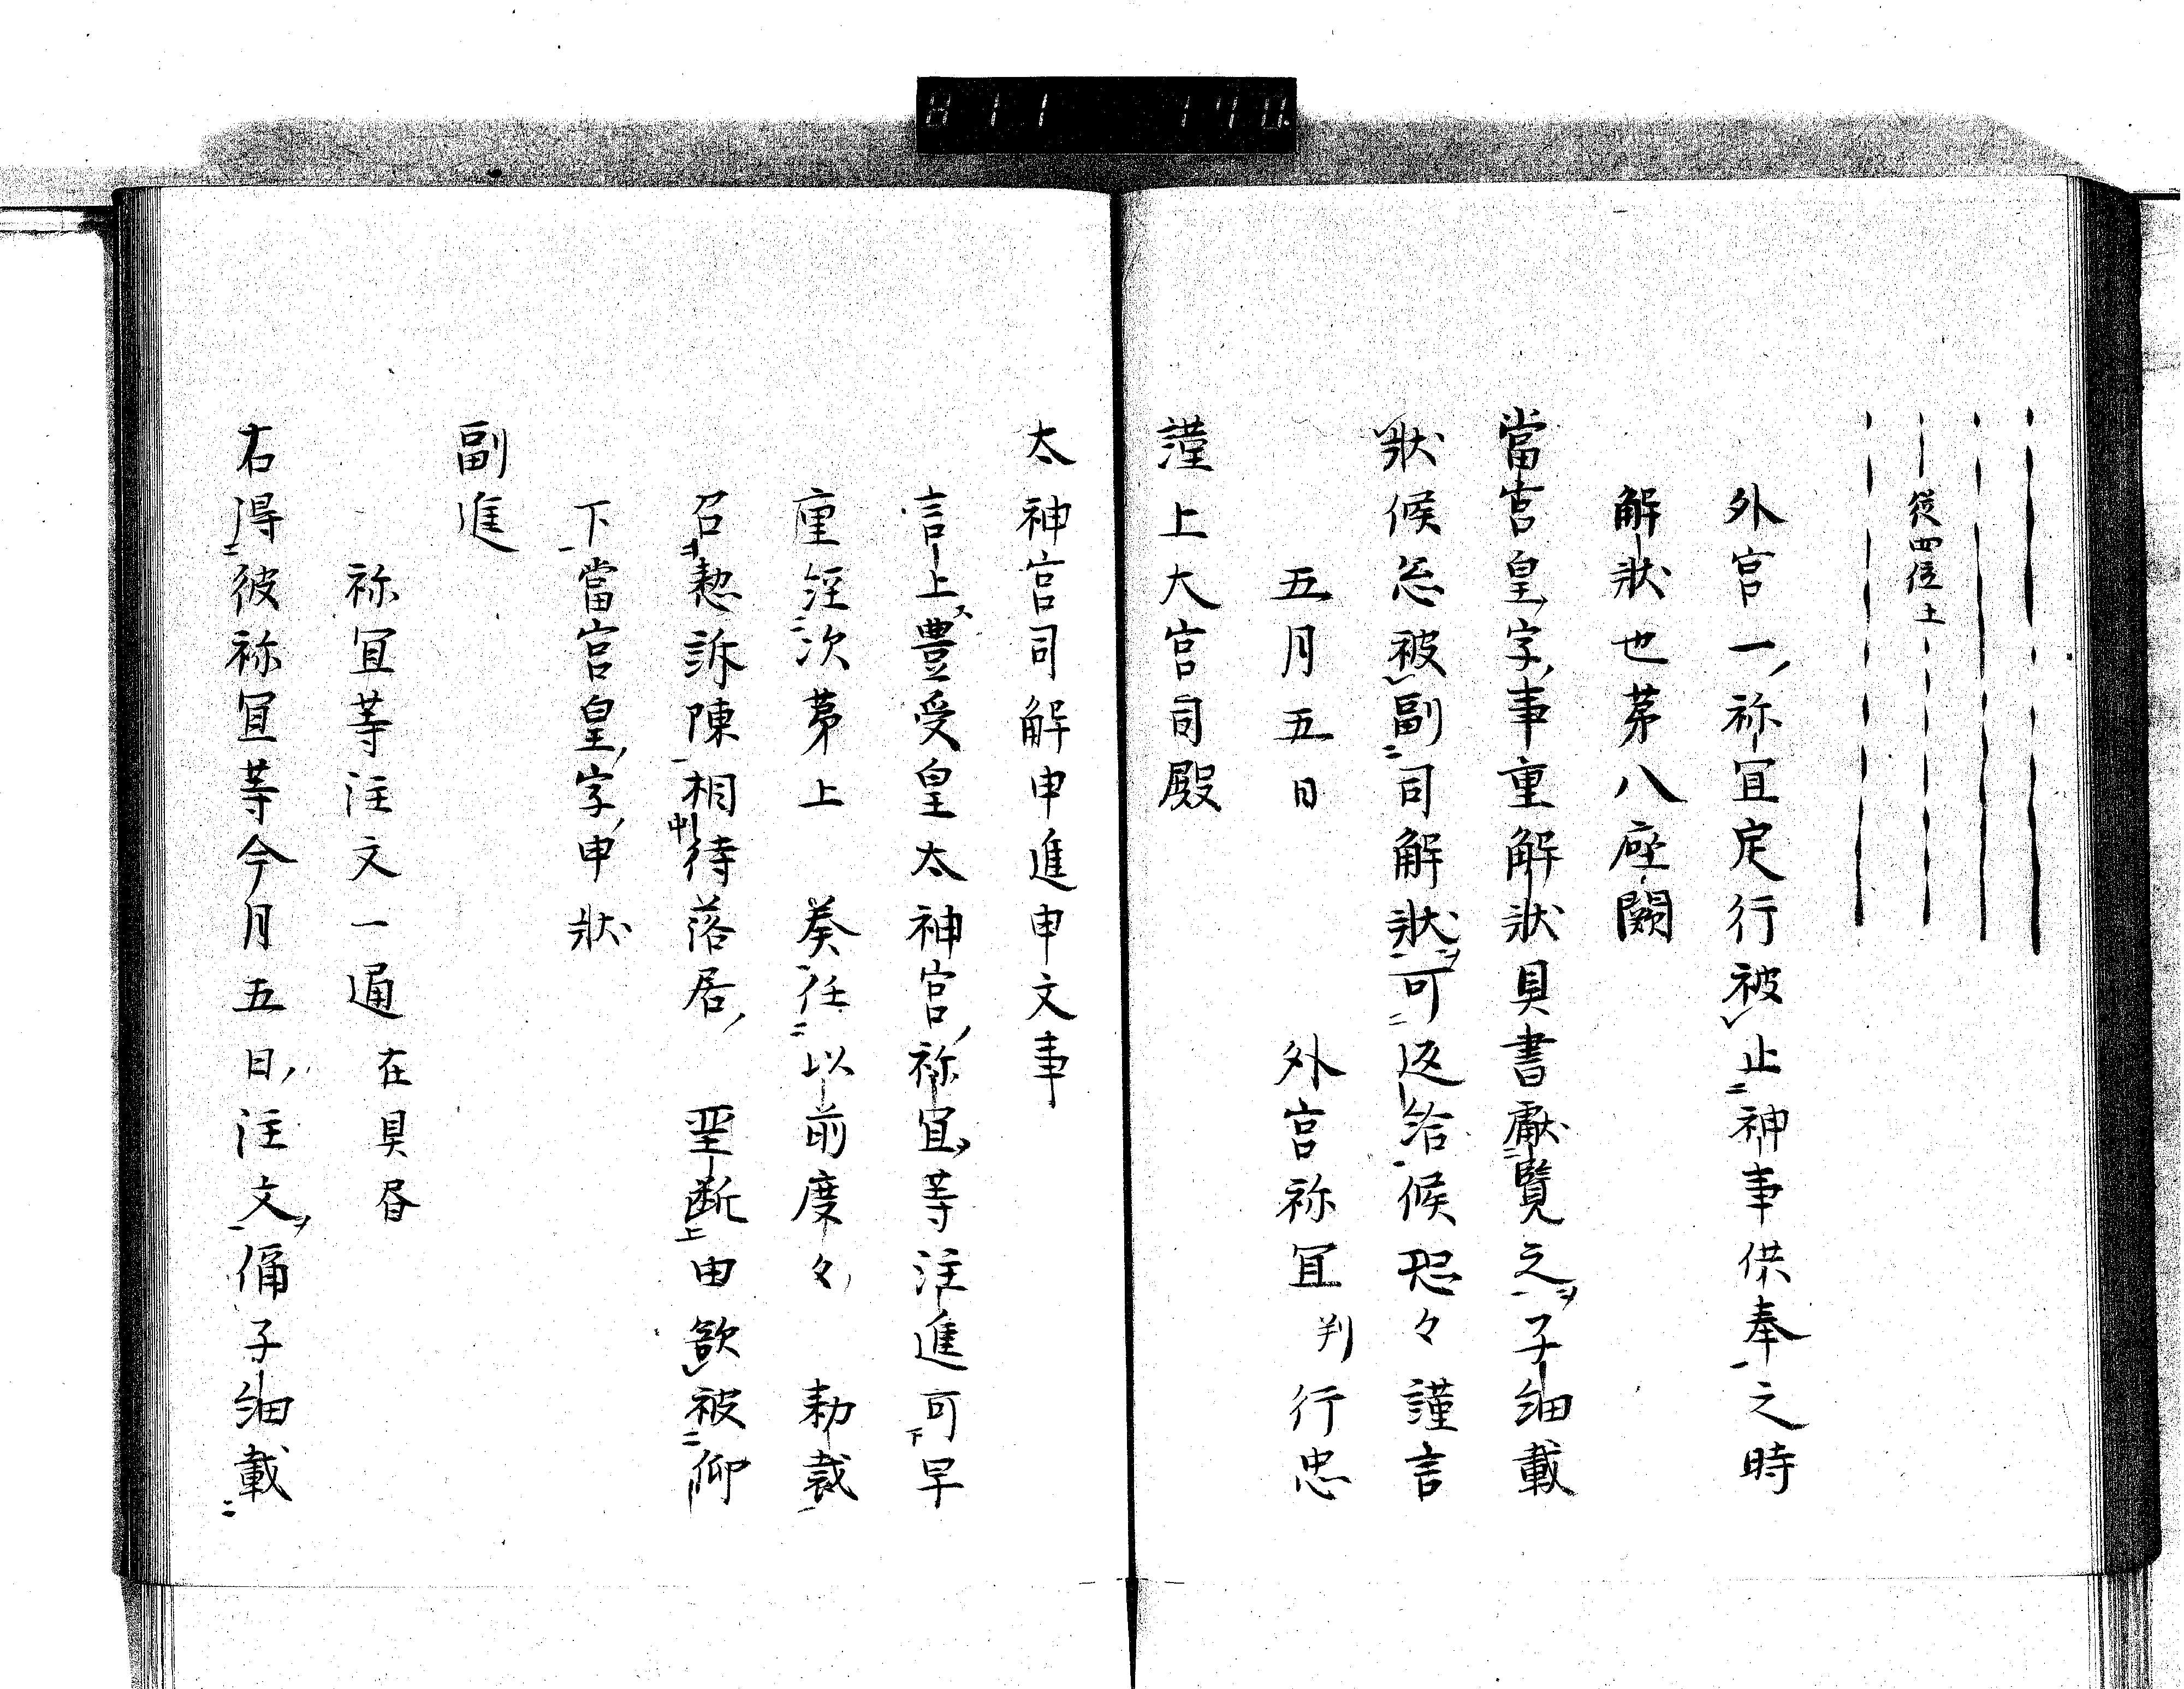 従四位上
外宮一、祢冝定行被止神事供奉之時
解状也苐八座闕
當宮皇字事重解状具書獻覽之ヲ子細載
状候忩被副司解状ヲ可返給候恐々謹言
五月五日　外宮祢冝判行忠
謹上大宮司殿
太神宮司解申進申文事
言上豊受皇太神宮祢冝等注進可早
重経次苐上　奏任以前度々　勅裁
召愸訴陳相待落居　聖断由欲被仰
下當宮皇字申状
副進
祢冝等注文一通在具書
右得彼祢冝等今月五日注文ヲ偁子細載